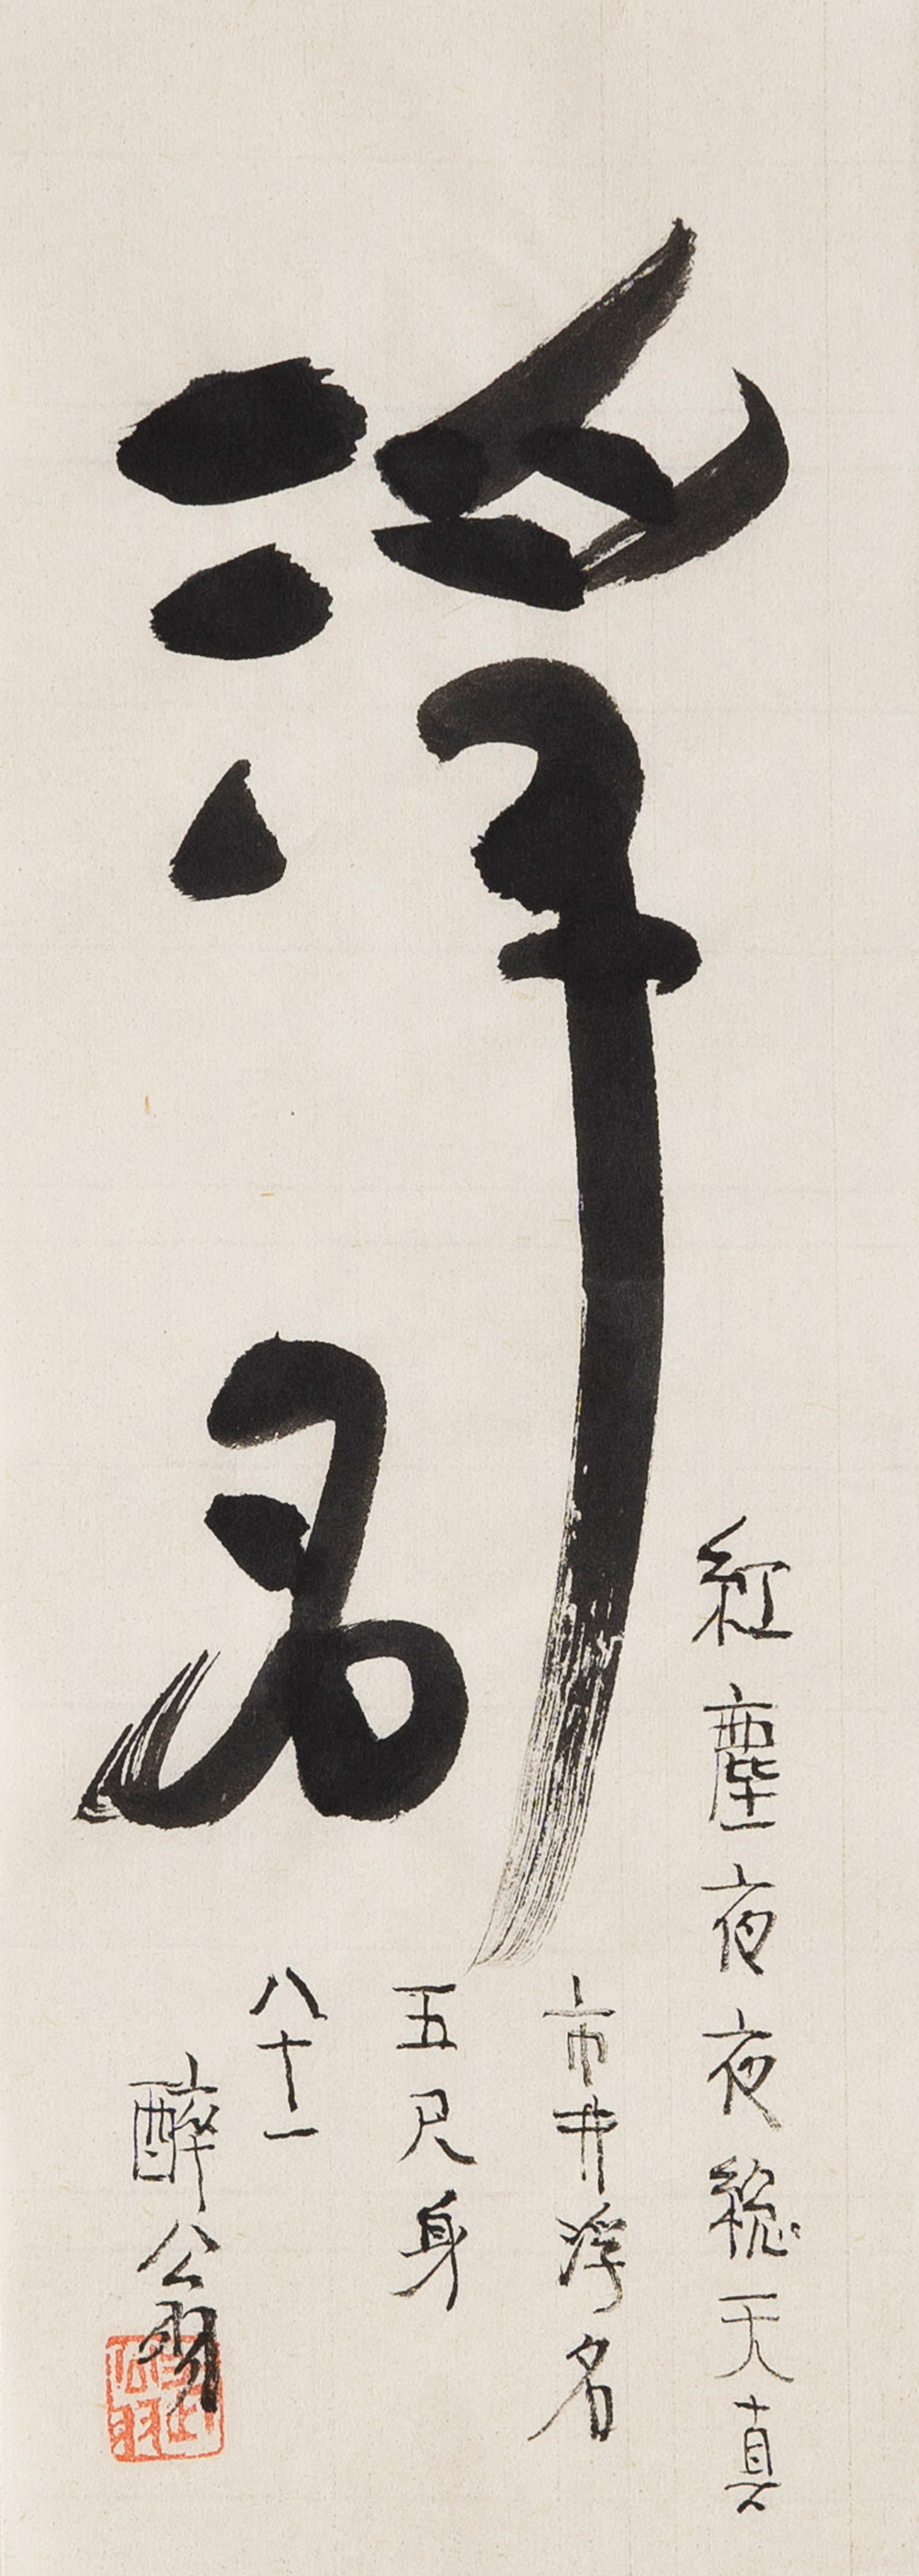 浮名
紅塵夜夜総天真
市井浮名
五尺身
八十一
醉公翁